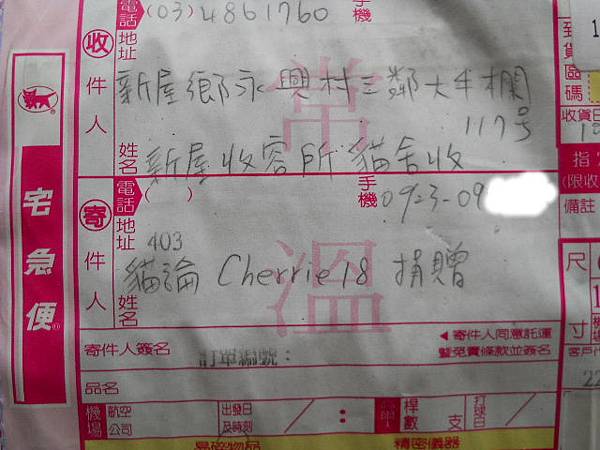 電話 (03)4861760 手機
收件人 地址 新屋鄉永興村三鄰大牛欄
117号
姓名 新屋收容所貓舍收
寄件人 電話 ( ) 手機 0923-09
地址 403
姓名 貓論 Cherrie18 捐贈
宅急便
常溫
寄件人簽名
訂單編號:
◀寄件人同意託運
暨免責條款並簽名
品名
機場 航空公司 出發日及時刻 / : 桿數 支 打球日 /
易碎物品 精密儀器
到貨區碼
收貨日
指
(限收
備註
尺寸
客戶代
22